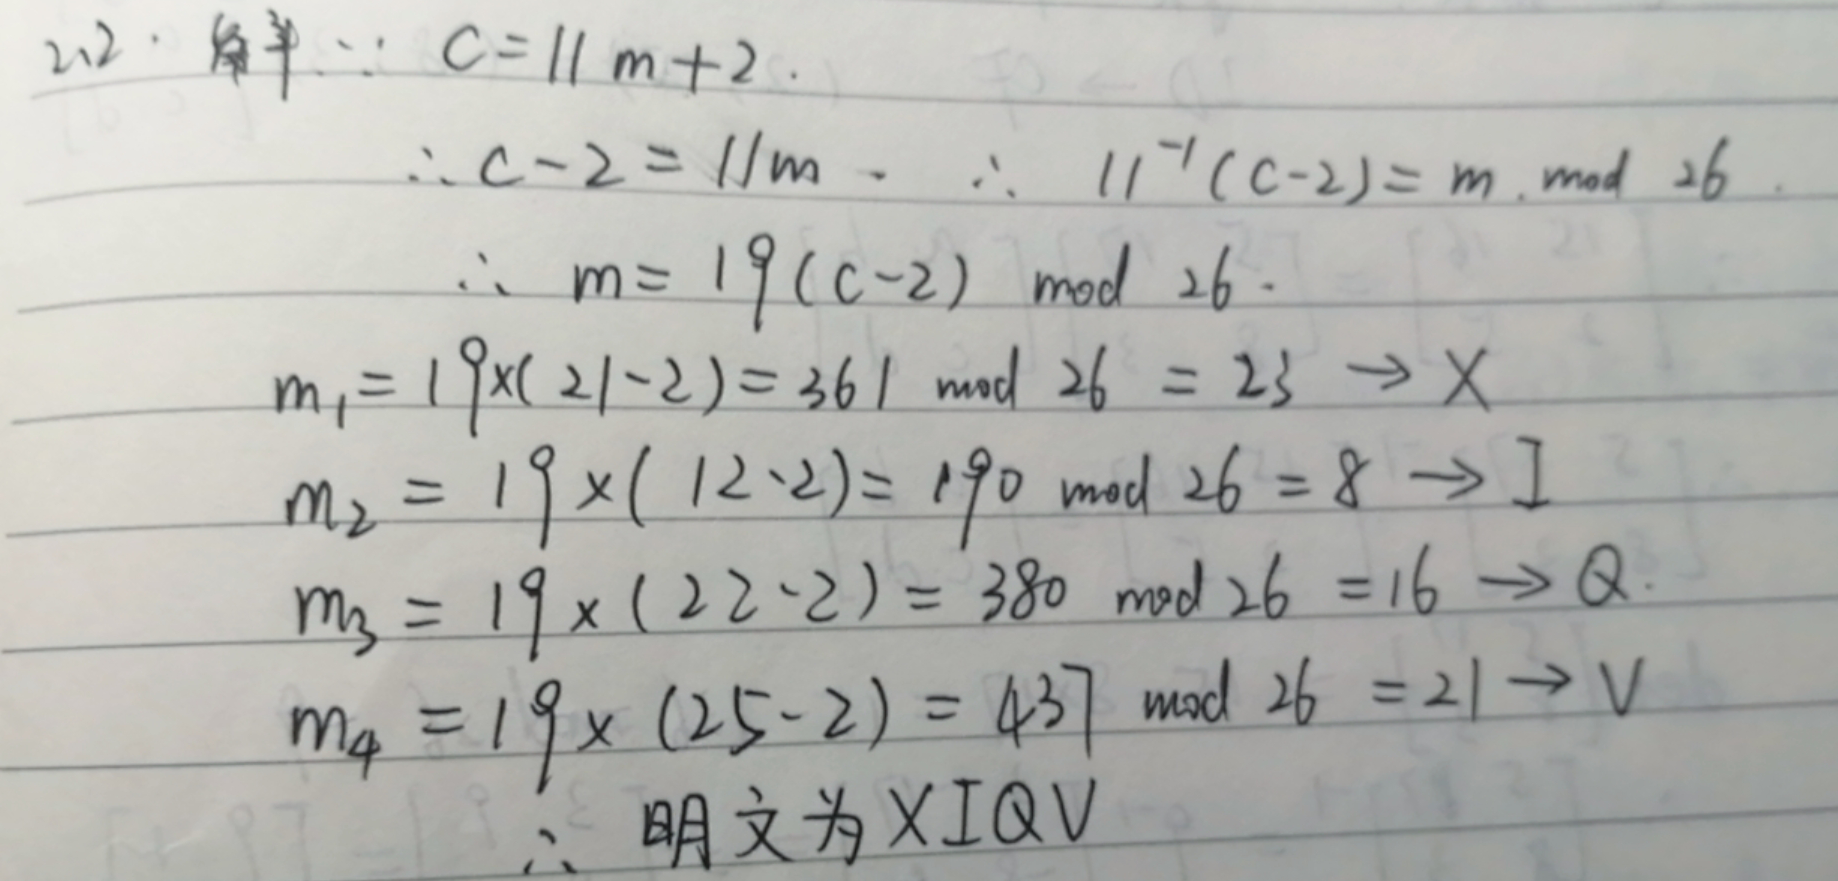 2.2. 解 ∵ C=11m+2.
∴ C-2=11m. ∴ 11⁻¹(C-2)=m. mod 26.
∴ m=19(C-2) mod 26.
m₁=19×(21-2)=361 mod 26=23→X
m₂=19×(12-2)=190 mod 26=8→I
m₃=19×(22-2)=380 mod 26=16→Q.
m₄=19×(25-2)=437 mod 26=21→V
∴ 明文为XIQV